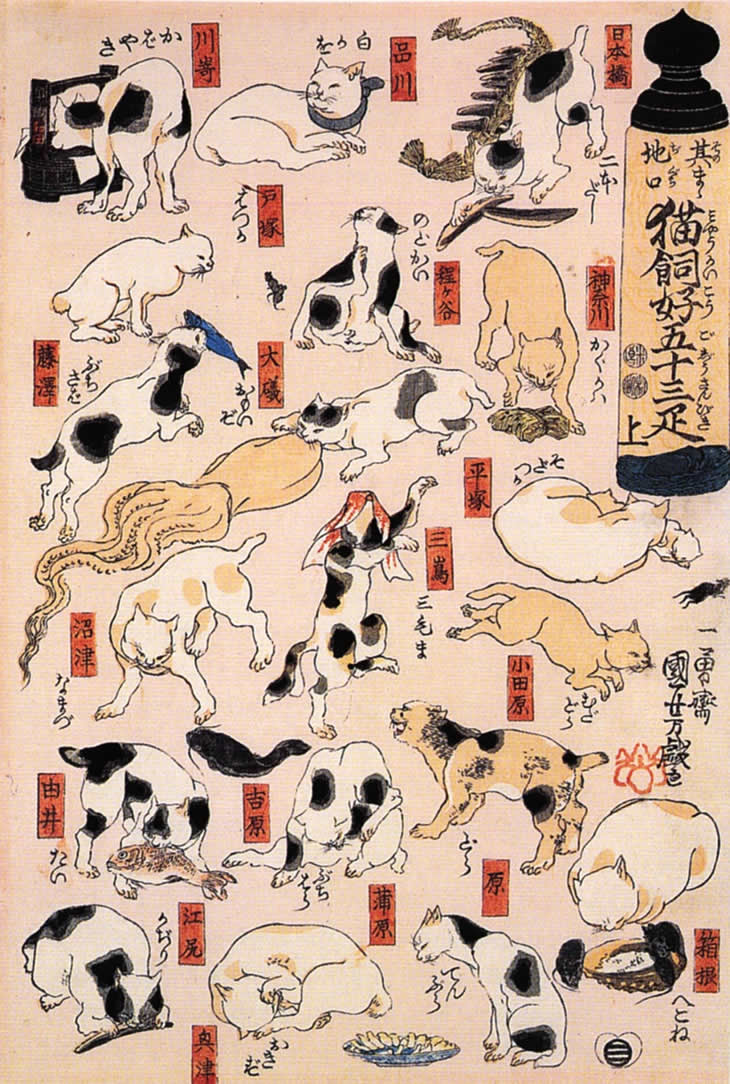 其まゝ
地口
猫飼好五十三疋
上
日本橋
二本だし
品川
白かを
川嵜
かばやき
神奈川
かぐかハ
程ヶ谷
のどかい
戸塚
はつか
藤澤
ぶちさば
大礒
おもいぞ
平塚
そだつか
小田原
むだどら
箱根
へこね
三嶌
三毛ま
沼津
なまづ
原
どら
吉原
ぶちはら
蒲原
てんぷら
由井
たい
奥津
おきず
江尻
かぢり
一勇齋
國芳戯画